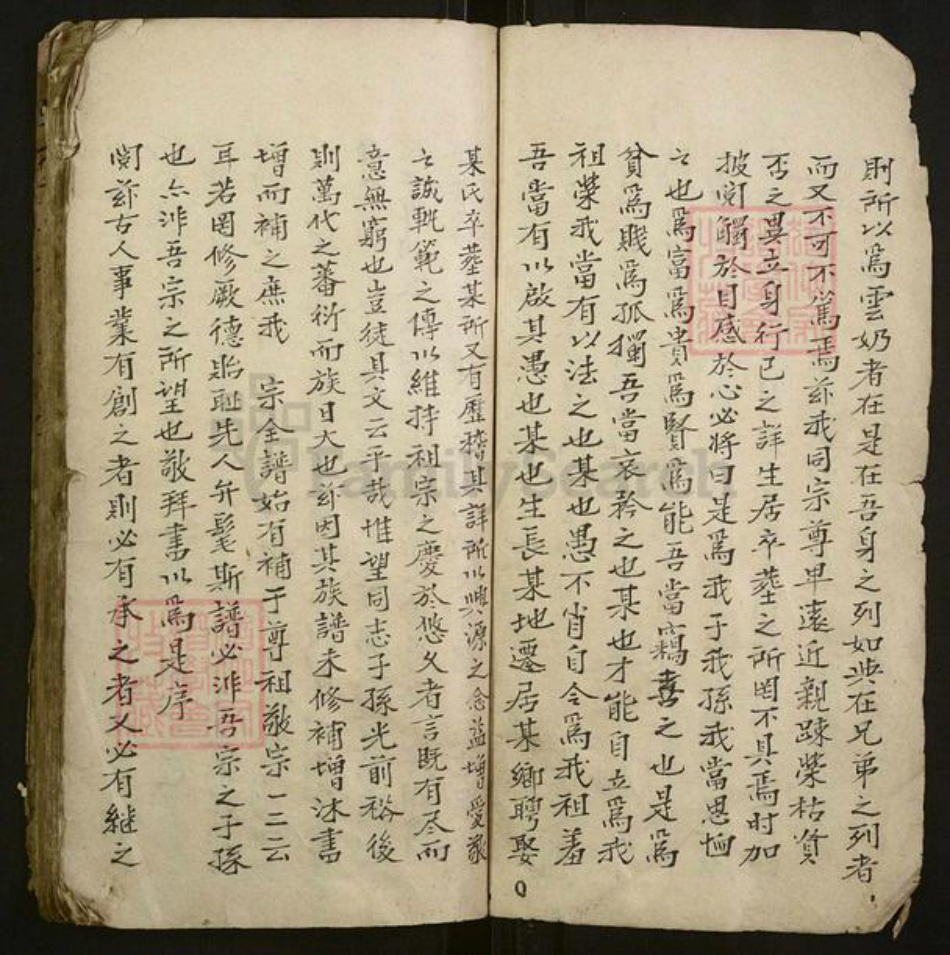 則所以爲雲奶者在是在吾身之列如與在兄弟之列者
而又不可不篤焉茲我同宗尊卑遠近親踈榮枯貧
否之異立身行己之詳生居卒塟之所罔不具焉時加
披閱觸於目感於心必將曰是爲我子我孫我當恩恤
之也爲富爲貴爲賢爲能吾當喜之也是爲
貧爲賤爲孤獨吾當哀矜之也某也才能自立爲我
祖榮我當有以法之也某也愚不肖自令爲我祖羞
吾當有以啟其愚也某也生長某地遷居某鄉聘娶
某氏卒塟某所又有歷稽其詳所以興源之念益增愛敬
之誠軌範之傳以維持祖宗之慶於悠久者言既有尽而
意無窮也豈徒具文云乎哉惟望同志子孫光前裕後
則萬代之蕃衍而族日大也茲因其族譜未修補增沐書
增而補之庶我 宗全譜始有補于尊祖敬宗一二云
耳若罔修厥德貽耻先人弁髦斯譜必非吾宗之子孫
也亦非吾宗之所望也敬拜書以爲是序
閱茲古人事業有創之者則必有承之者又必有継之
FamilySearch